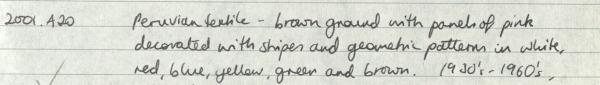 2001.A20 Peruvian textile - brown ground with panels of pink
decorated with stripes and geometric patterns in white,
red, blue, yellow, green and brown. 1930's - 1960's,